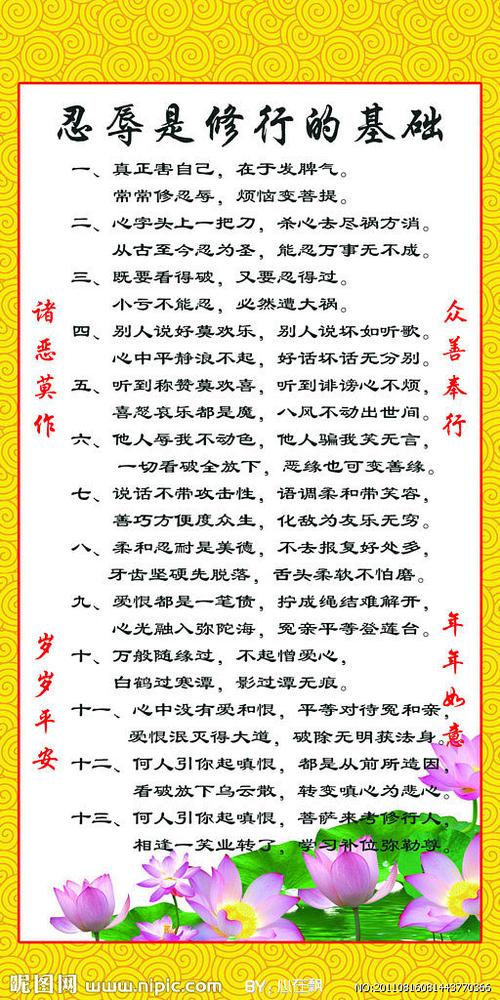 忍辱是修行的基础
一、真正害自己，在于发脾气。
常常修忍辱，烦恼变菩提。
二、心字头上一把刀，杀心去尽祸方消。
从古至今忍为圣，能忍万事无不成。
三、既要看得破，又要忍得过。
小亏不能忍，必然遭大祸。
四、别人说好莫欢乐，别人说坏如听歌。
心中平静浪不起，好话坏话无分别。
五、听到称赞莫欢喜，听到诽谤心不烦，
喜怒哀乐都是魔，八风不动出世间。
六、他人辱我不动色，他人骗我笑无言，
一切看破全放下，恶缘也可变善缘。
七、说话不带攻击性，语调柔和带笑容，
善巧方便度众生，化敌为友乐无穷。
八、柔和忍耐是美德，不去报复好处多，
牙齿坚硬先脱落，舌头柔软不怕磨。
九、爱恨都是一笔债，拧成绳结难解开，
心光融入弥陀海，冤亲平等登莲台。
十、万般随缘过，不起憎爱心，
白鹤过寒潭，影过潭无痕。
十一、心中没有爱和恨，平等对待冤和亲，
爱恨泯灭得大道，破除无明获法身。
十二、何人引你起嗔恨，都是从前所造因，
看破放下乌云散，转变嗔心为悲心。
十三、何人引你起嗔恨，菩萨来考修行人，
相逢一笑业转了，学习补位弥勒尊。
诸恶莫作
众善奉行
岁岁平安
年年如意
昵图网 www.nipic.com
BY：心在飘
NO:20110816081443770366